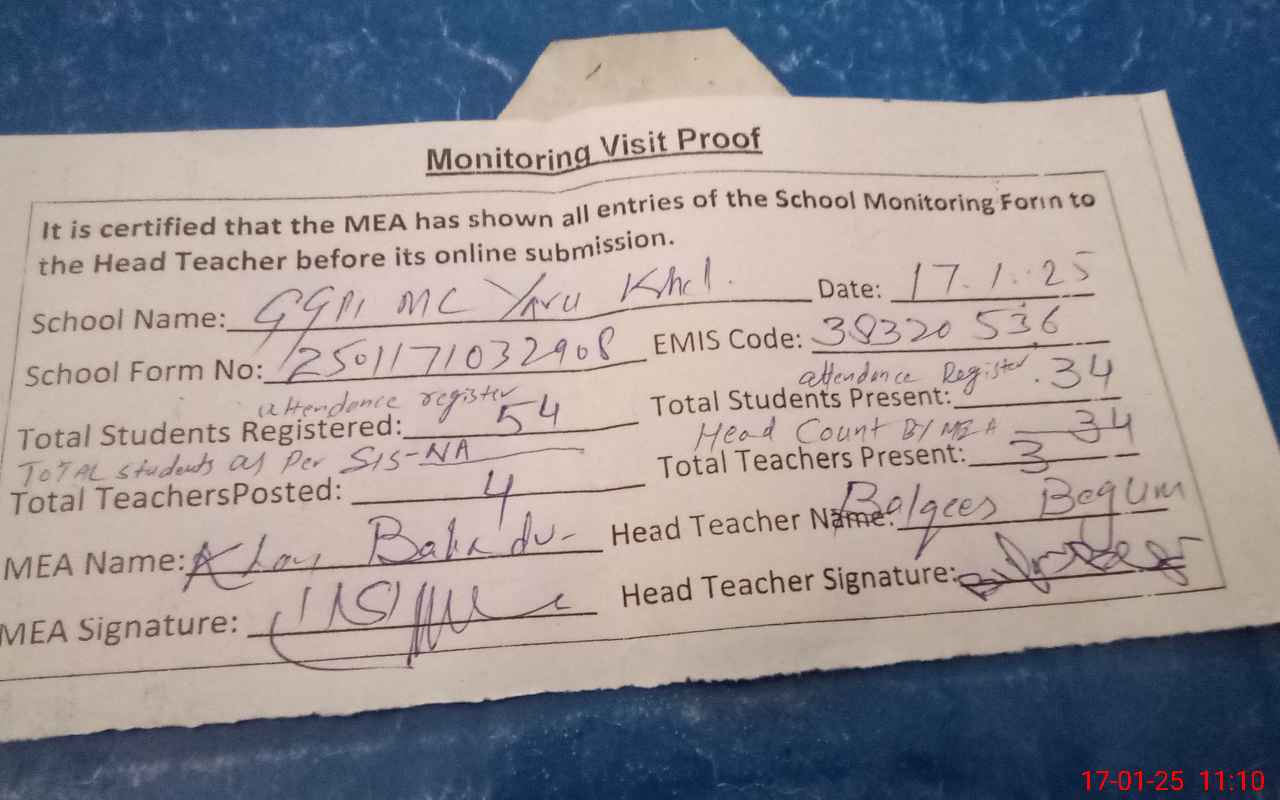 Monitoring Visit Proof
It is certified that the MEA has shown all entries of the School Monitoring Form to
the Head Teacher before its online submission.
School Name: MC Yaru Khel. Date: 17.1.25
School Form No: 2501171032908 EMIS Code: 38320 536
attendance register attendance Register. 34
Total Students Registered: 54 Total Students Present:
TOTAL students as Per SIS-NA Head Count By MEA 34
Total TeachersPosted: 4 Total Teachers Present: 3
MEA Name: Bahadur Head Teacher Name: Balqees Begum
MEA Signature: Head Teacher Signature:
17-01-25 11:10